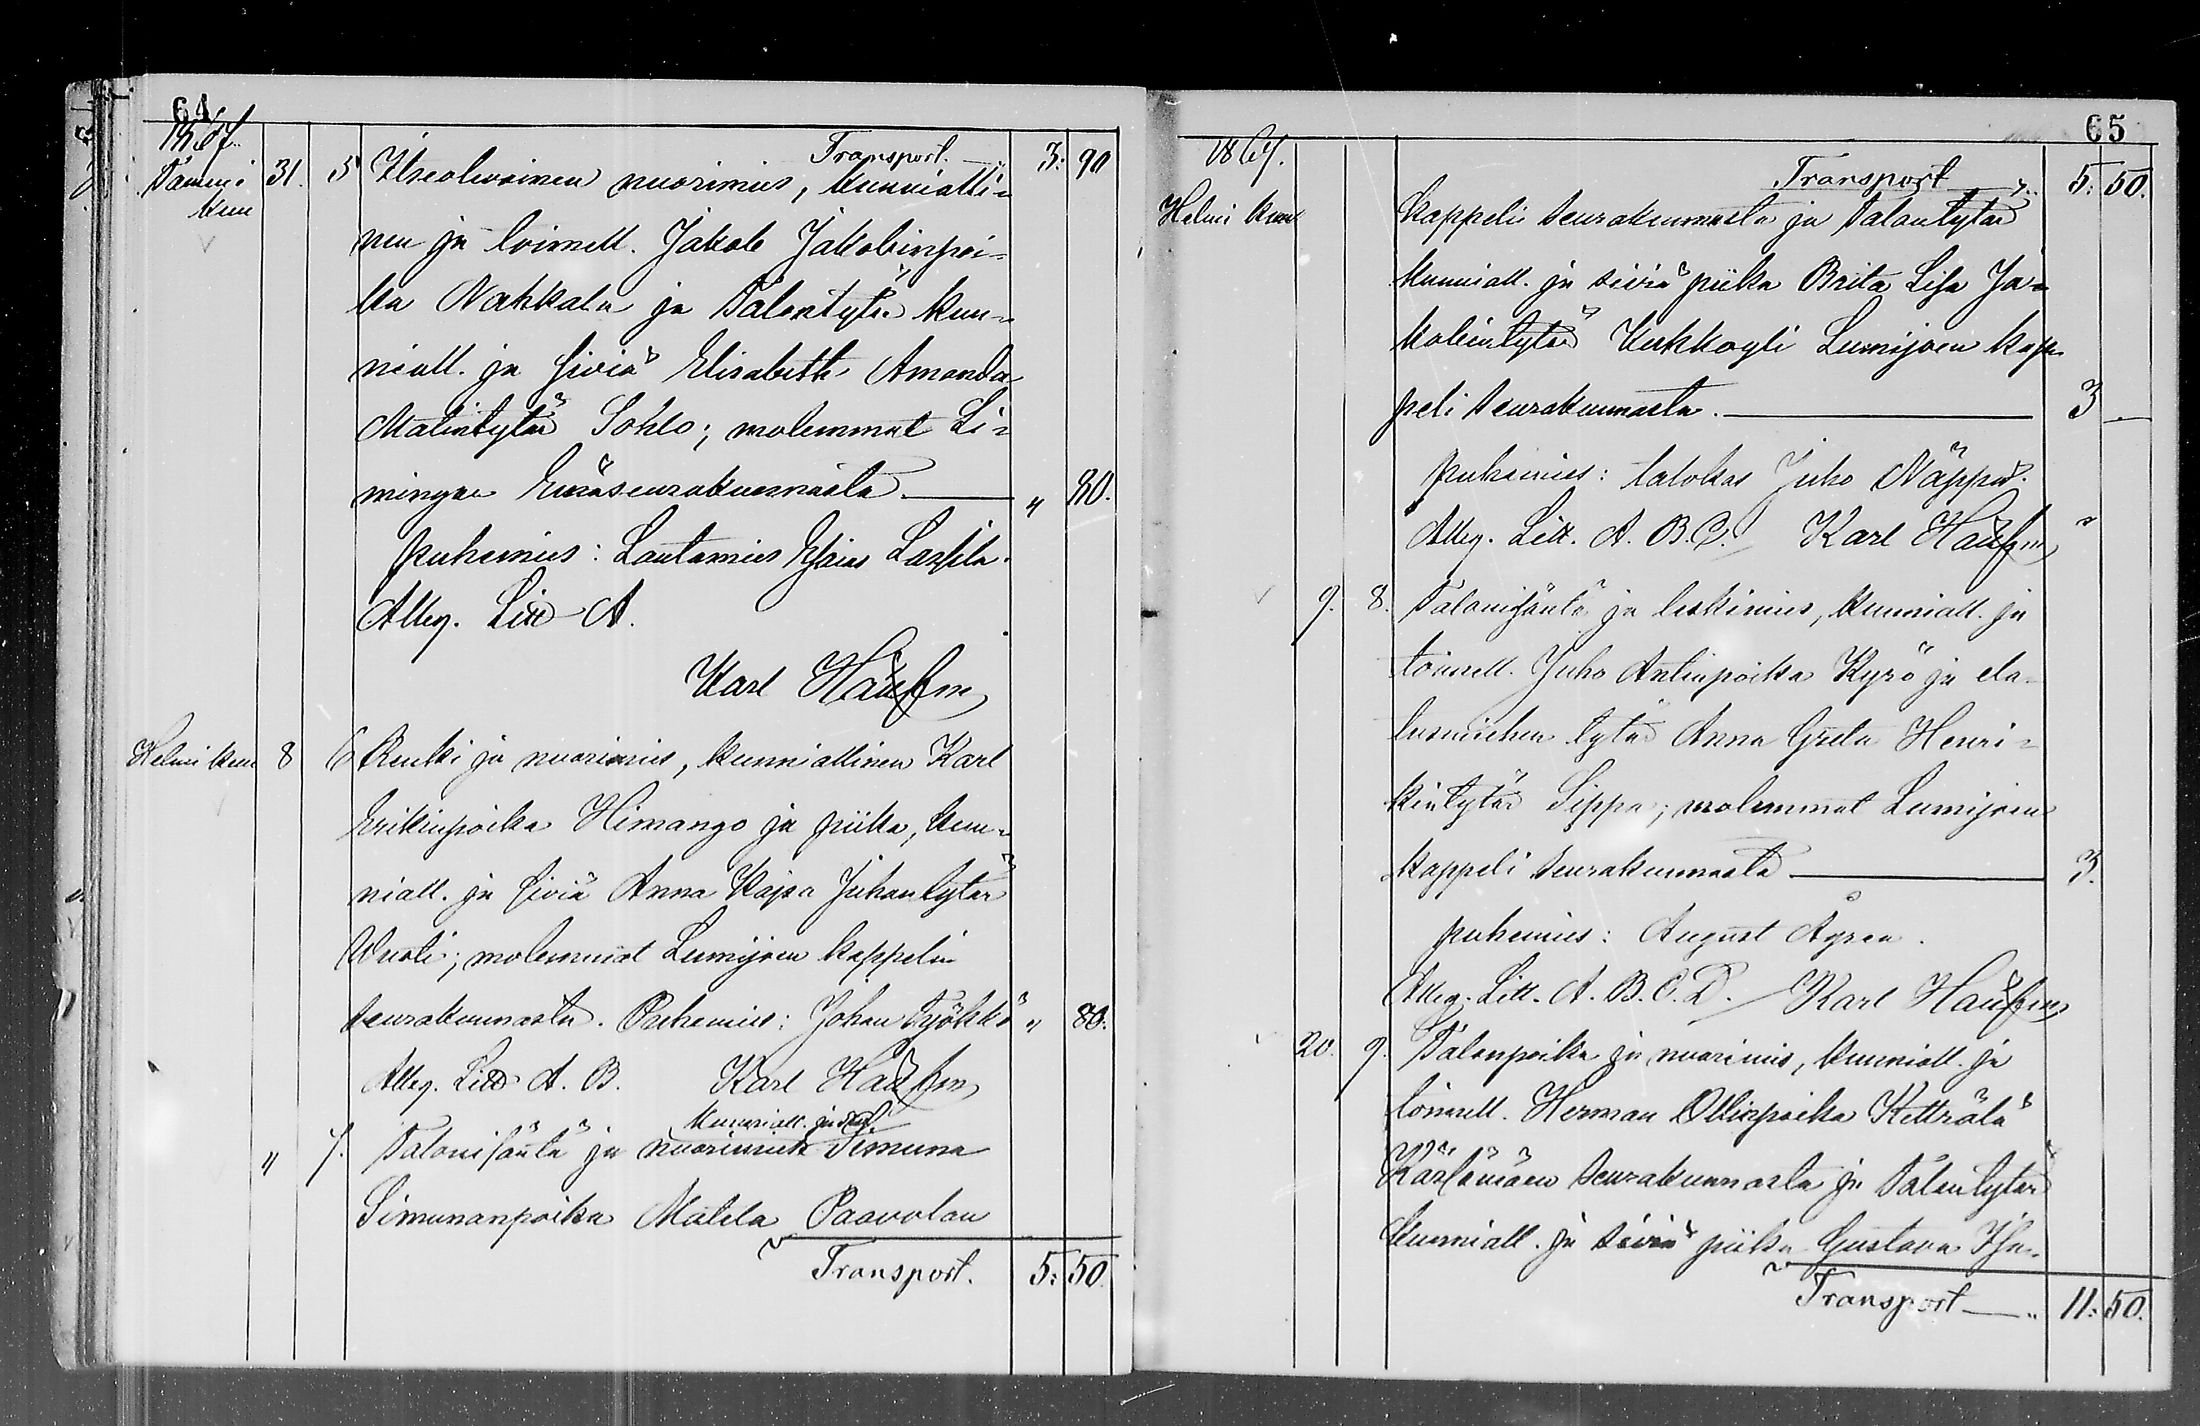 64
1867.
Transport. 3: 90
Tammi 31. 5 Itseolewainen nuorimies, kunnialli=
kuu
nen ja toimell. Jakob Jakobinpoi=
ka Nahkala ja Talontytär kun=
niall. ja siviä Elisabeth Amanda
Matintytär Sohlo; molemmat Li=
mingan Emäseurakunnasta. " 80.
puhemies: Lautamies Esaias Lassila.
Alleg. Litt A.
Karl
Helmi kuu 8 6 Renki ja nuorimies, kunniallinen Karl
Erikinpoika Himango ja piika, kun=
niall. ja siviä Anna Kajsa Juhantytär
; molemmat Lumijoen kappelin
seurakunnasta. Puhemies: Johan Työkkö " 80.
Alleg. Litt A. B. Karl
kunniall. ja
" 7. Talonisäntä ja nuorimies Simuna
Simunanpoika Matila Paavolan
Transport. 5: 50.
65
1867.
Transport 5: 50.
Helmi kuu kappeli seurakunnasta ja Talontytär
kunniall. ja siviä piika Brita Lisa Ja=
kobintytär Kukkoyli Lumijoen kap=
peli seurakunnasta. 3 —
puhemies: talokas Juho Näppä.
Alleg. Litt. A. B. C. Karl
9. 8. Talonisäntä ja leskimies, kunniall. ja
toimell. Juho Antinpoika Kyrö ja ela=
tusmiehen tytär Anna Greta Henri=
kintytär Sippa; molemmat Lumijoen
kappeli seurakunnasta 3.
puhemies: August Ågren.
Alleg. Litt. A. B. C. D. Karl
20. 9. Talonpoika ja nuorimies, kunniall. ja
toimell. Herman Ollinpoika Ketträlä
Kärsämäen seurakunnasta ja Talontytär
kunniall. ja siviä piika Gustava Isa=
Transport 11: 50.